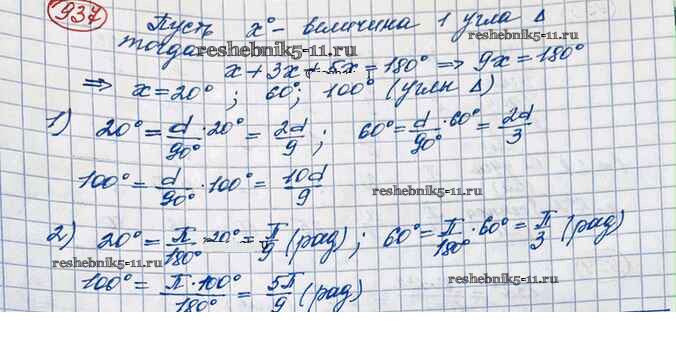 937
Пусть x° - величина 1 угла Δ
тогда reshebnik5-11.ru
x + 3x + 5x = 180° => 9x = 180°
=> x = 20° ; 60°; 100° (углы Δ)
1) 20° = d/90° · 20° = 2d/9 ; 60° = d/90° · 60° = 2d/3
100° = d/90° · 100° = 10d/9 reshebnik5-11.ru
2) 20° = π/180° · 20° = π/9 (рад) ; 60° = π/180° · 60° = π/3 (рад)
reshebnik5-11.ru reshebnik5-11.ru
100° = π·100°/180° = 5π/9 (рад)